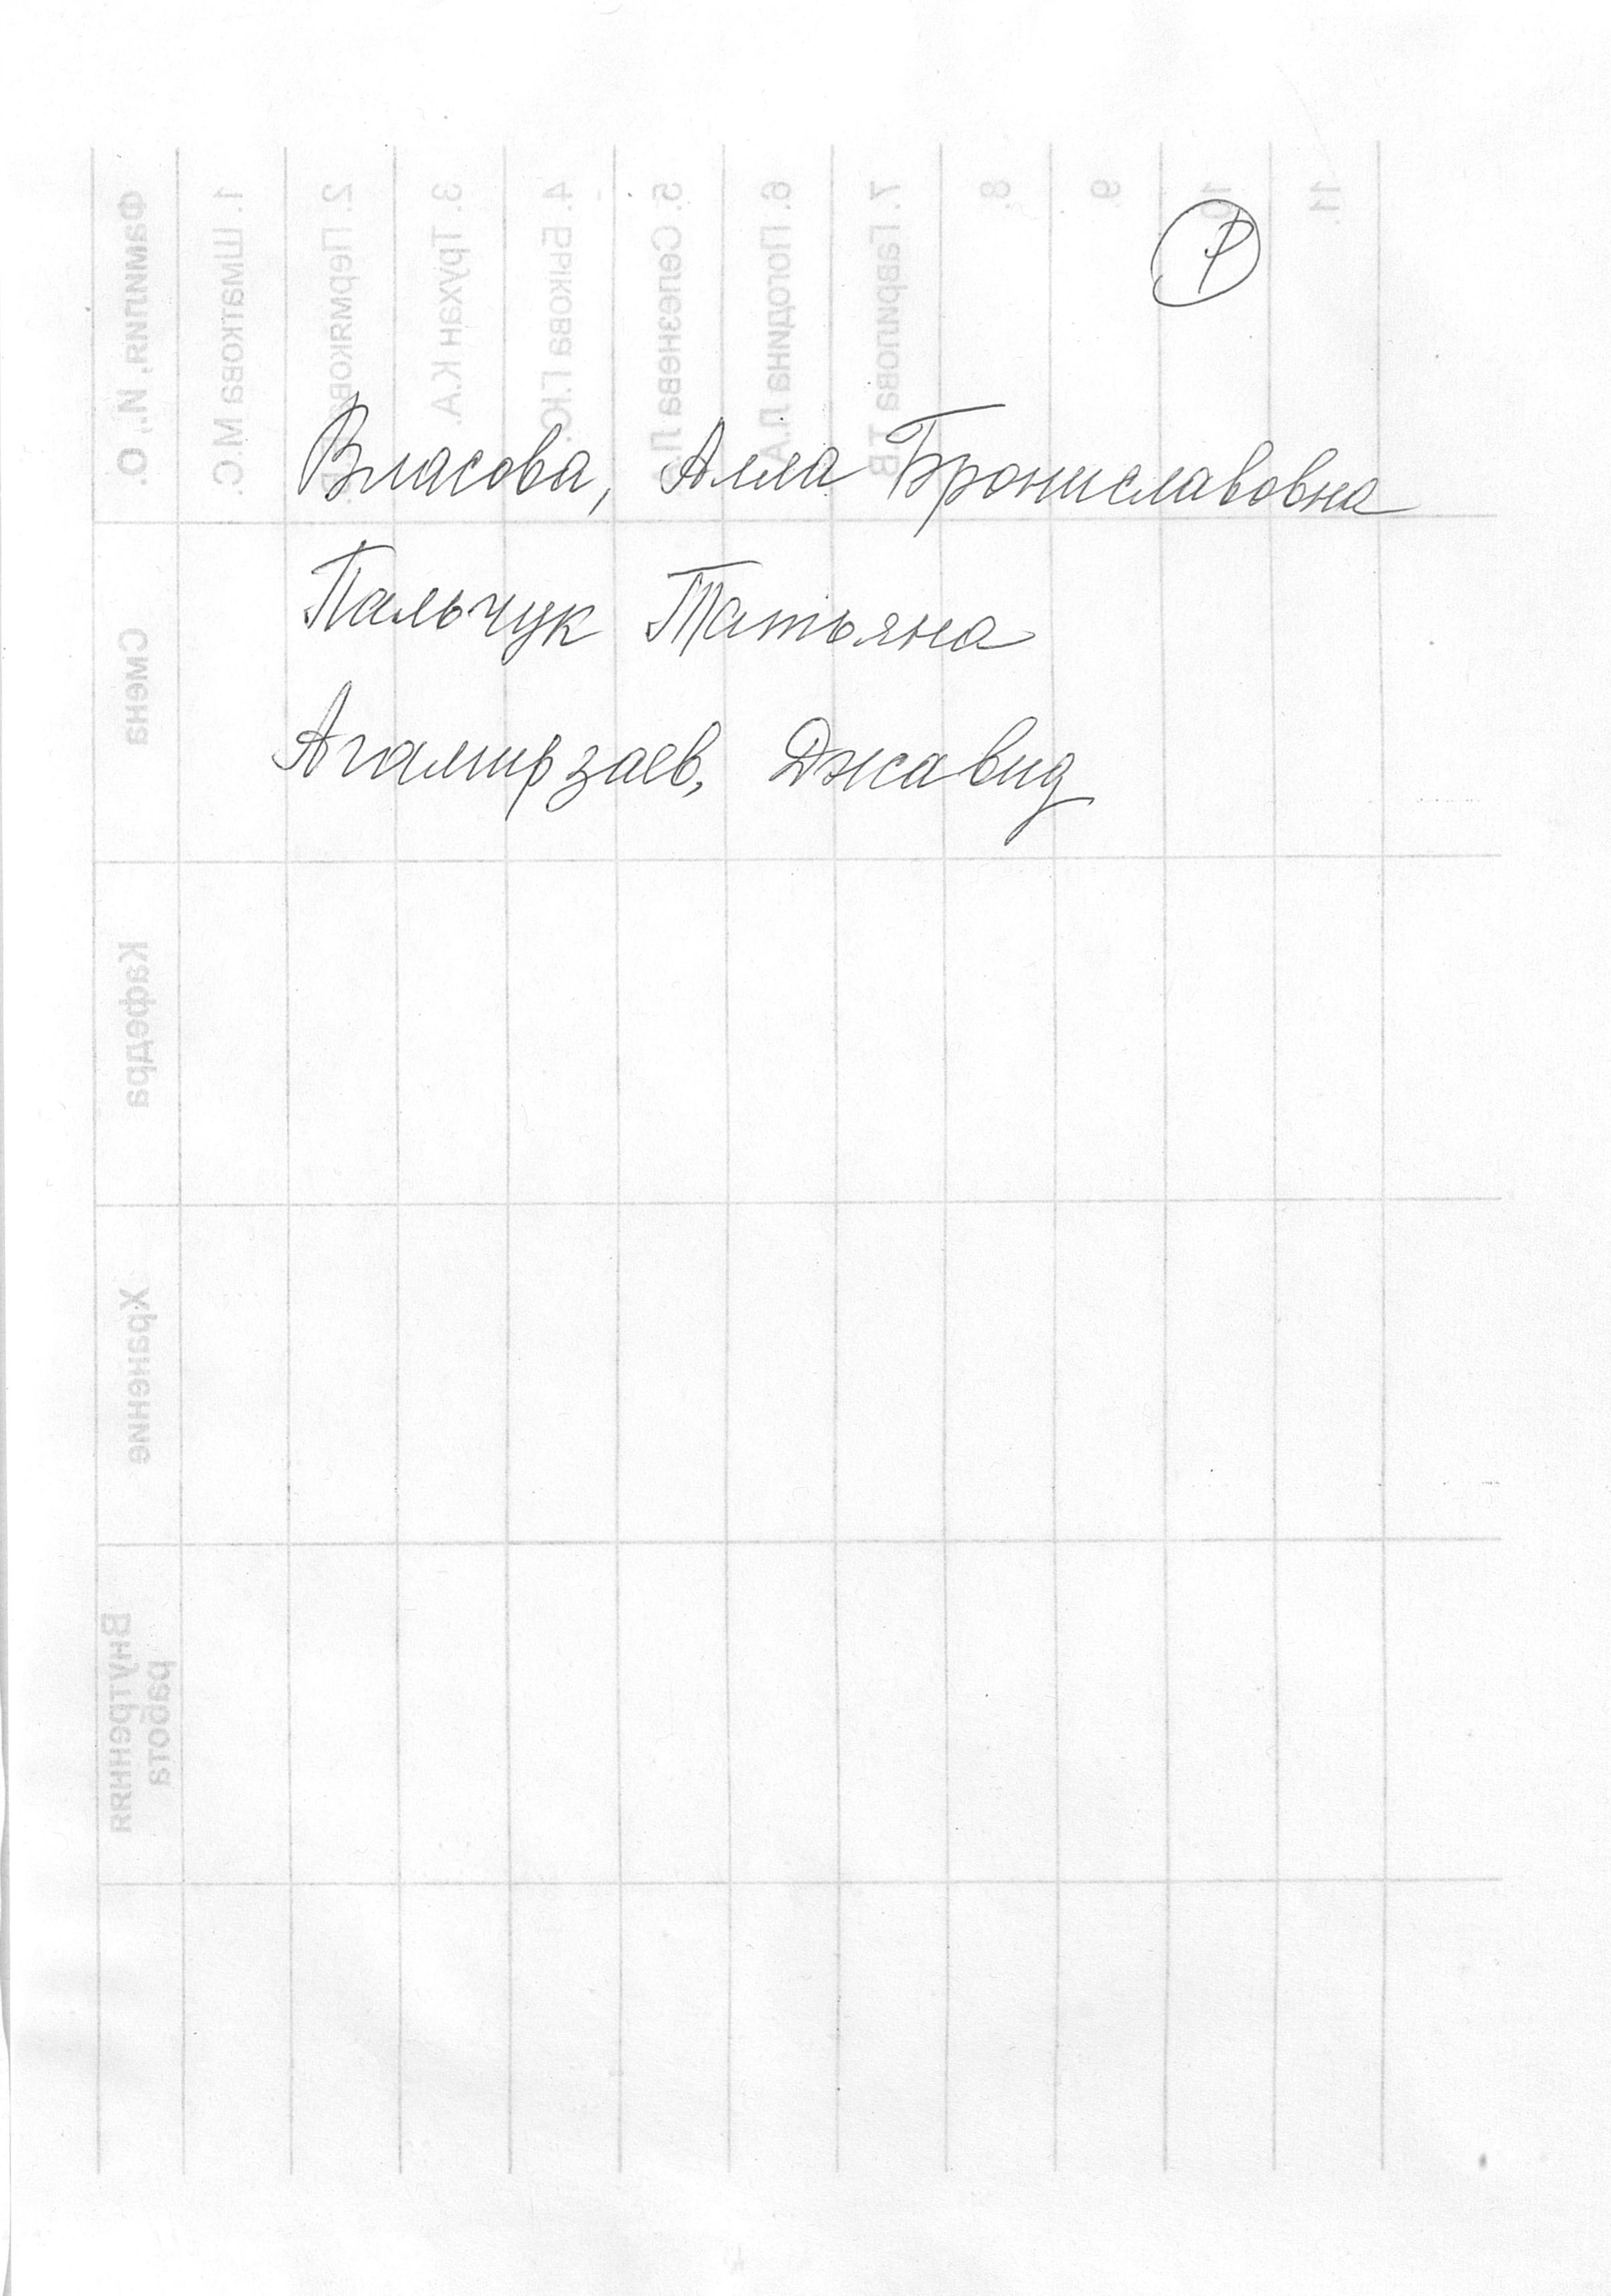 Власова, Алла Брониславовна
Пальчук Татьяна
Агамирзаев, Джавид
Фамилия, И., О.
1. Шматкова М.С.
2. Пермякова
3. Трухан К.А.
4. Быкова Г.Ю.
5. Селезнева Л.
6. Погодина Л.А.
7. Гаврилова Т.В
8.
9.
10.
11.
Смена
Кафедра
Хранение
Внутренняя
работа